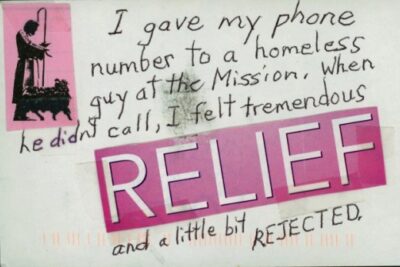 I gave my phone
number to a homeless
guy at the Mission. When
he didn't call, I felt tremendous
RELIEF
and a little bit REJECTED.